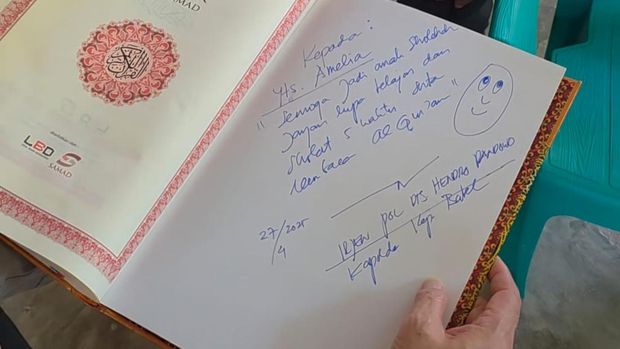 SAMAD
LBD SAMAD
Kepada :
Yts. Amelia
" Semoga jadi anak sholehah
jangan lupa belajar dan
sholat 5 waktu serta
membaca al Qur'an "
27/4 2025
IRJEN POL Drs HENDRO PANDOWO
Kapolda Kep Babel